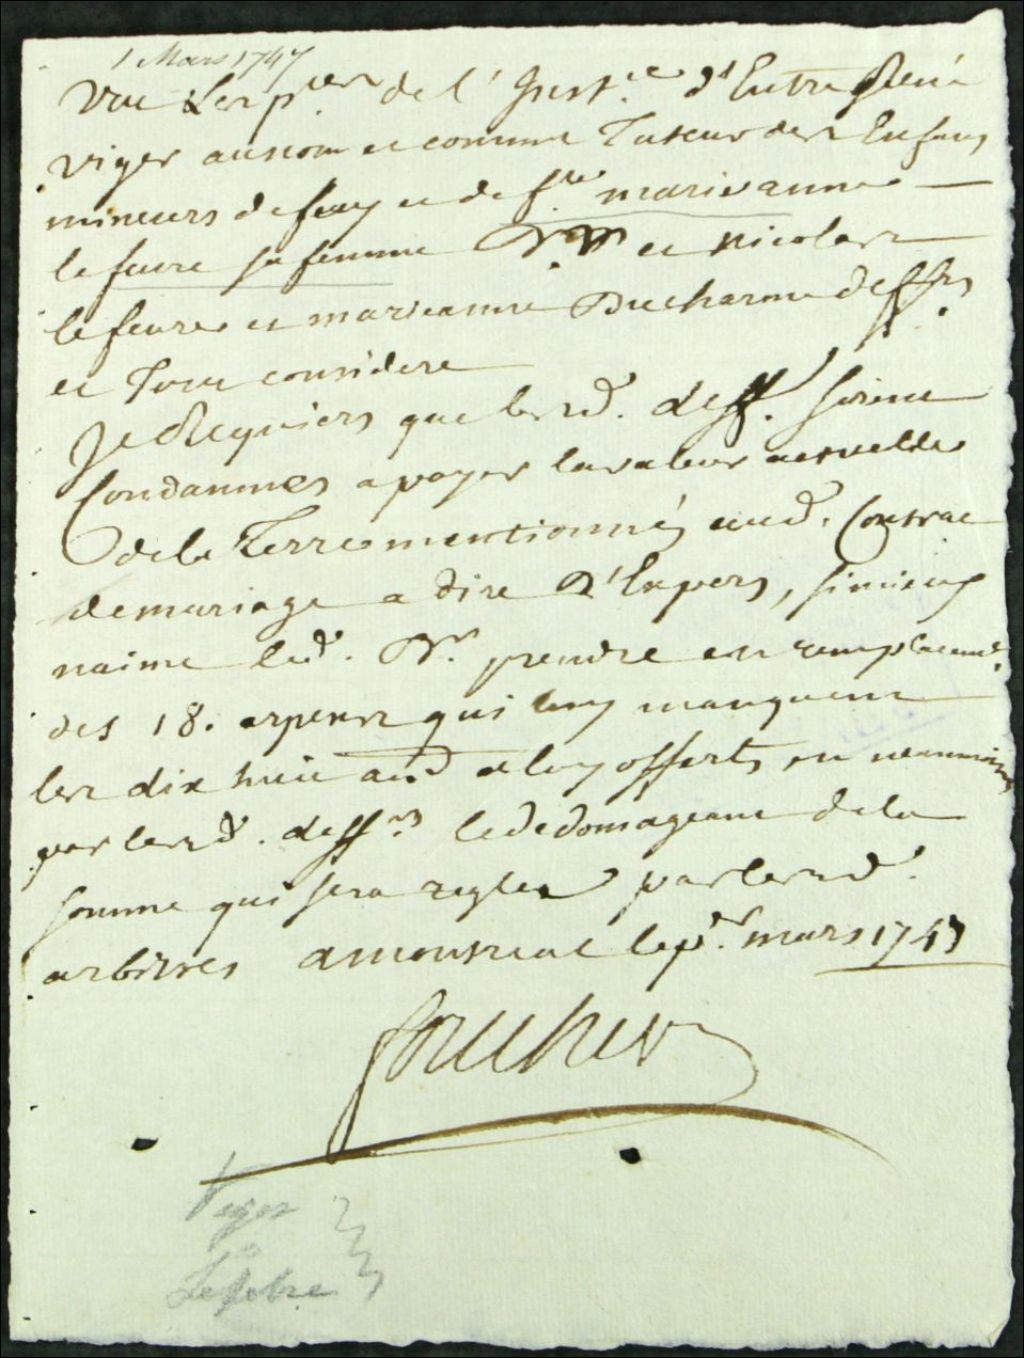 1 Mars 1747
Vue Les pieces de l'Inst.ce d'Entre René
viger au nom et comme Tuteur des Enfans
mineurs de feu et de f.lle marie anne
lefevre sa femme D.r et nicolas
lefevre et marie anne Ducharme deff.rs
et Tout considere
Je Requiers que les d. deff. soient
Condamnés a payer la valeur actuelle
de la Terre mentionné aud. Contrac
de mariage a dire D'Expers, si mieux
naime led. Dr. prendre en remplacemt.
des 18. arpens qui luy manquent
les dix huit a luy offerts
par les d. deff.rs le dedomageant de la
somme qui sera reglee par les d.
arbitres a montreal le p.r mars 1747
foucher
Viger
Lefebre